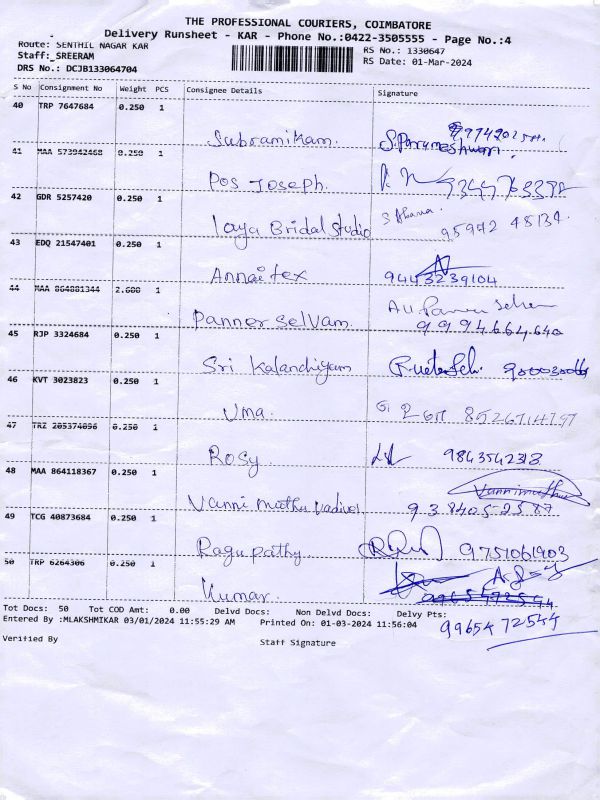 THE PROFESSIONAL COURIERS, COIMBATORE
Delivery Runsheet - KAR - Phone No.:0422-3505555 - Page No.:4
Route: SENTHIL NAGAR KAR
RS No.: 1330647
Staff: SREERAM
RS Date: 01-Mar-2024
DRS No.: DCJB133064704
S No Consignment No Weight PCS Consignee Details Signature
40 TRP 7647684 0.250 1
Subramikam. S. Parameshwari.
41 MAA 573942468 0.250 1
Pos Joseph.
42 GDR 5257420 0.250 1
laya Bridal Studio 95942 48134.
43 EDQ 21547401 0.250 1
Annai tex 9443239104
44 MAA 864881344 2.600 1
Panner Selvam. 9994664640
45 RJP 3324684 0.250 1
Sri Kalandhiyam
46 KVT 3023823 0.250 1
Uma.
47 TRZ 205374096 0.250 1
Rosy 9843542318
48 MAA 864118367 0.250 1
Vanni muthu vadivel Vannimuthu 9384052587
49 TCG 40873684 0.250 1
Ragupathy. 9751061903
50 TRP 6264306 0.250 1
Kumar.
Tot Docs: 50 Tot COD Amt: 0.00 Delvd Docs: Non Delvd Docs: Delvy Pts:
Entered By :MLAKSHMIKAR 03/01/2024 11:55:29 AM Printed On: 01-03-2024 11:56:04
99654 72544
Verified By Staff Signature